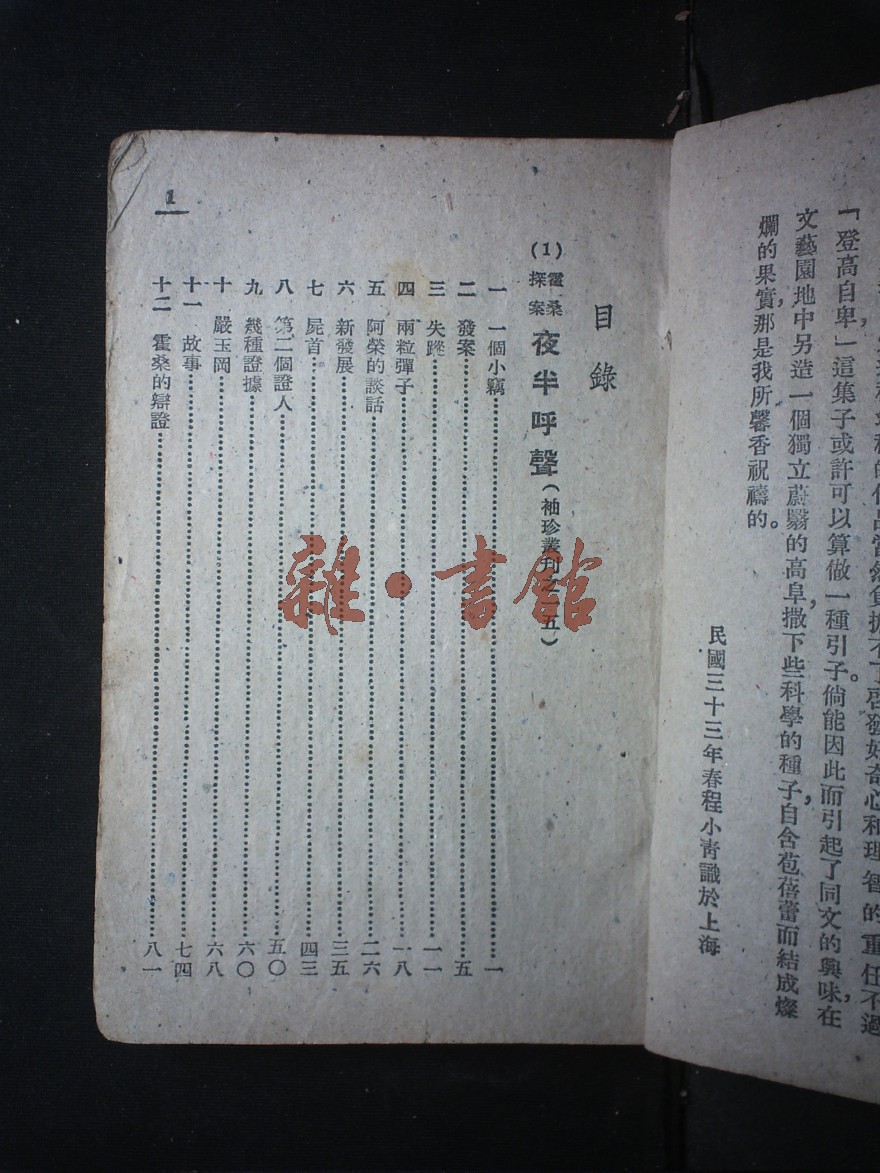 啓發好奇心和理智的重任不過
「登高自卑」這集子或許可以算做一種引子。倘能因此而引起了同文的興味，在
文藝園地中另造一個獨立蔚翳的高阜，撒下些科學的種子，自含苞蓓蕾而結成燦
爛的果實，那是我所馨香祝禱的。
民國三十三年春程小青識於上海
目錄
(1) 霍桑探案 夜半呼聲（袖珍叢刊之二五）
一 一個小竊 一
二 發案 五
三 失蹤 一一
四 兩粒彈子 一八
五 阿榮的談話 二六
六 新發展 三五
七 屍首 四三
八 第二個證人 五〇
九 幾種證據 六〇
十 嚴玉岡 六八
十一 故事 七四
十二 霍桑的辯證 八一
1
雜·書館